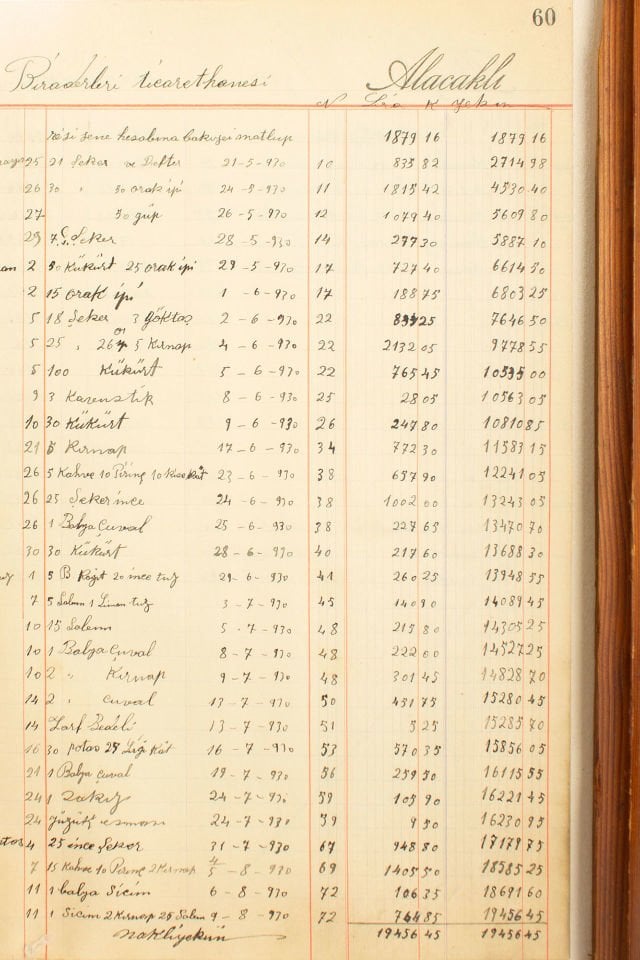 60
Biraderleri ticarethanesi Alacaklı
N Lira K Yekun
sene hesabına bakıyei matlup 1879 16 1879 16
25 21 Şeker ve Defter 21-5-930 10 835 82 2714 98
26 30 " 50 orak ipi 24-5-930 11 1815 42 4530 40
27 50 güp 26-5-930 12 1079 40 5609 80
29 7 Ç. Şeker 28-5-930 14 277 30 5887 10
2 50 Kükürt 25 orak ipi 29-5-930 17 727 40 6614 50
2 15 orak ipi 1-6-930 17 188 75 6803 25
5 18 Şeker 3 Göktaş 2-6-930 22 25 7646 50
5 25 " 5 Kırnap 4-6-930 22 2132 05 9778 55
5 100 Kükürt 5-6-930 22 765 45 10535 00
9 3 8-6-930 25 28 05 10563 05
10 30 Kükürt 9-6-930 26 247 80 10810 85
21 5 Kırnap 17-6-930 34 772 30 11583 15
26 5 Kahve 10 Pirinç 10 23-6-930 38 657 90 12241 05
26 25 Şeker ince 24-6-930 38 1002 00 13243 05
26 1 Balya Çuval 25-6-930 38 227 65 13470 70
30 30 Kükürt 28-6-930 40 217 60 13688 30
1 5 B 20 ince tuz 29-6-930 41 260 25 13948 55
7 5 Salam 1 Limon tuz 3-7-930 45 140 90 14089 45
10 15 Salamı 5-7-930 48 215 80 14305 25
10 1 Balya Çuval 8-7-930 48 222 00 14527 25
10 2 " Kırnap 9-7-930 48 301 45 14828 70
14 2 " Çuval 13-7-930 50 451 75 15280 45
14 Zarf Bedeli 13-7-930 51 5 25 15285 70
16 30 potas 25 Kât 16-7-930 53 570 35 15856 05
21 1 Balya Çuval 19-7-930 56 259 50 16115 55
24 1 24-7-930 59 105 90 16221 45
24 24-7-930 59 9 50 16230 95
4 25 ince Şeker 31-7-930 67 948 80 17179 75
7 15 Kahve 10 Pirinç 2 Kırnap 5-8-930 69 1405 50 18585 25
11 1 balya Sicim 6-8-930 72 106 35 18691 60
11 1 Sicim 2 Kırnap 25 Salam 9-8-930 72 764 85 19456 45
nakliyekün 19456 45 19456 45